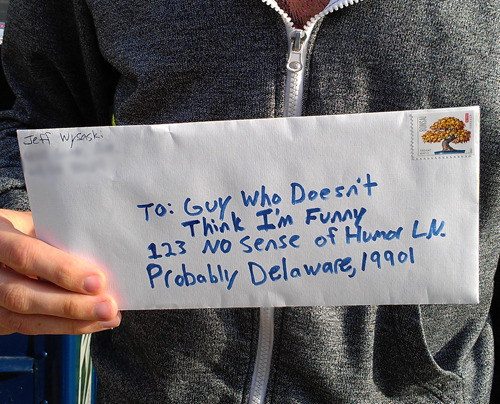 Jeff Wysaski
To: Guy Who Doesn't
Think I'm Funny
123 No Sense of Humor LN.
Probably Delaware, 19901